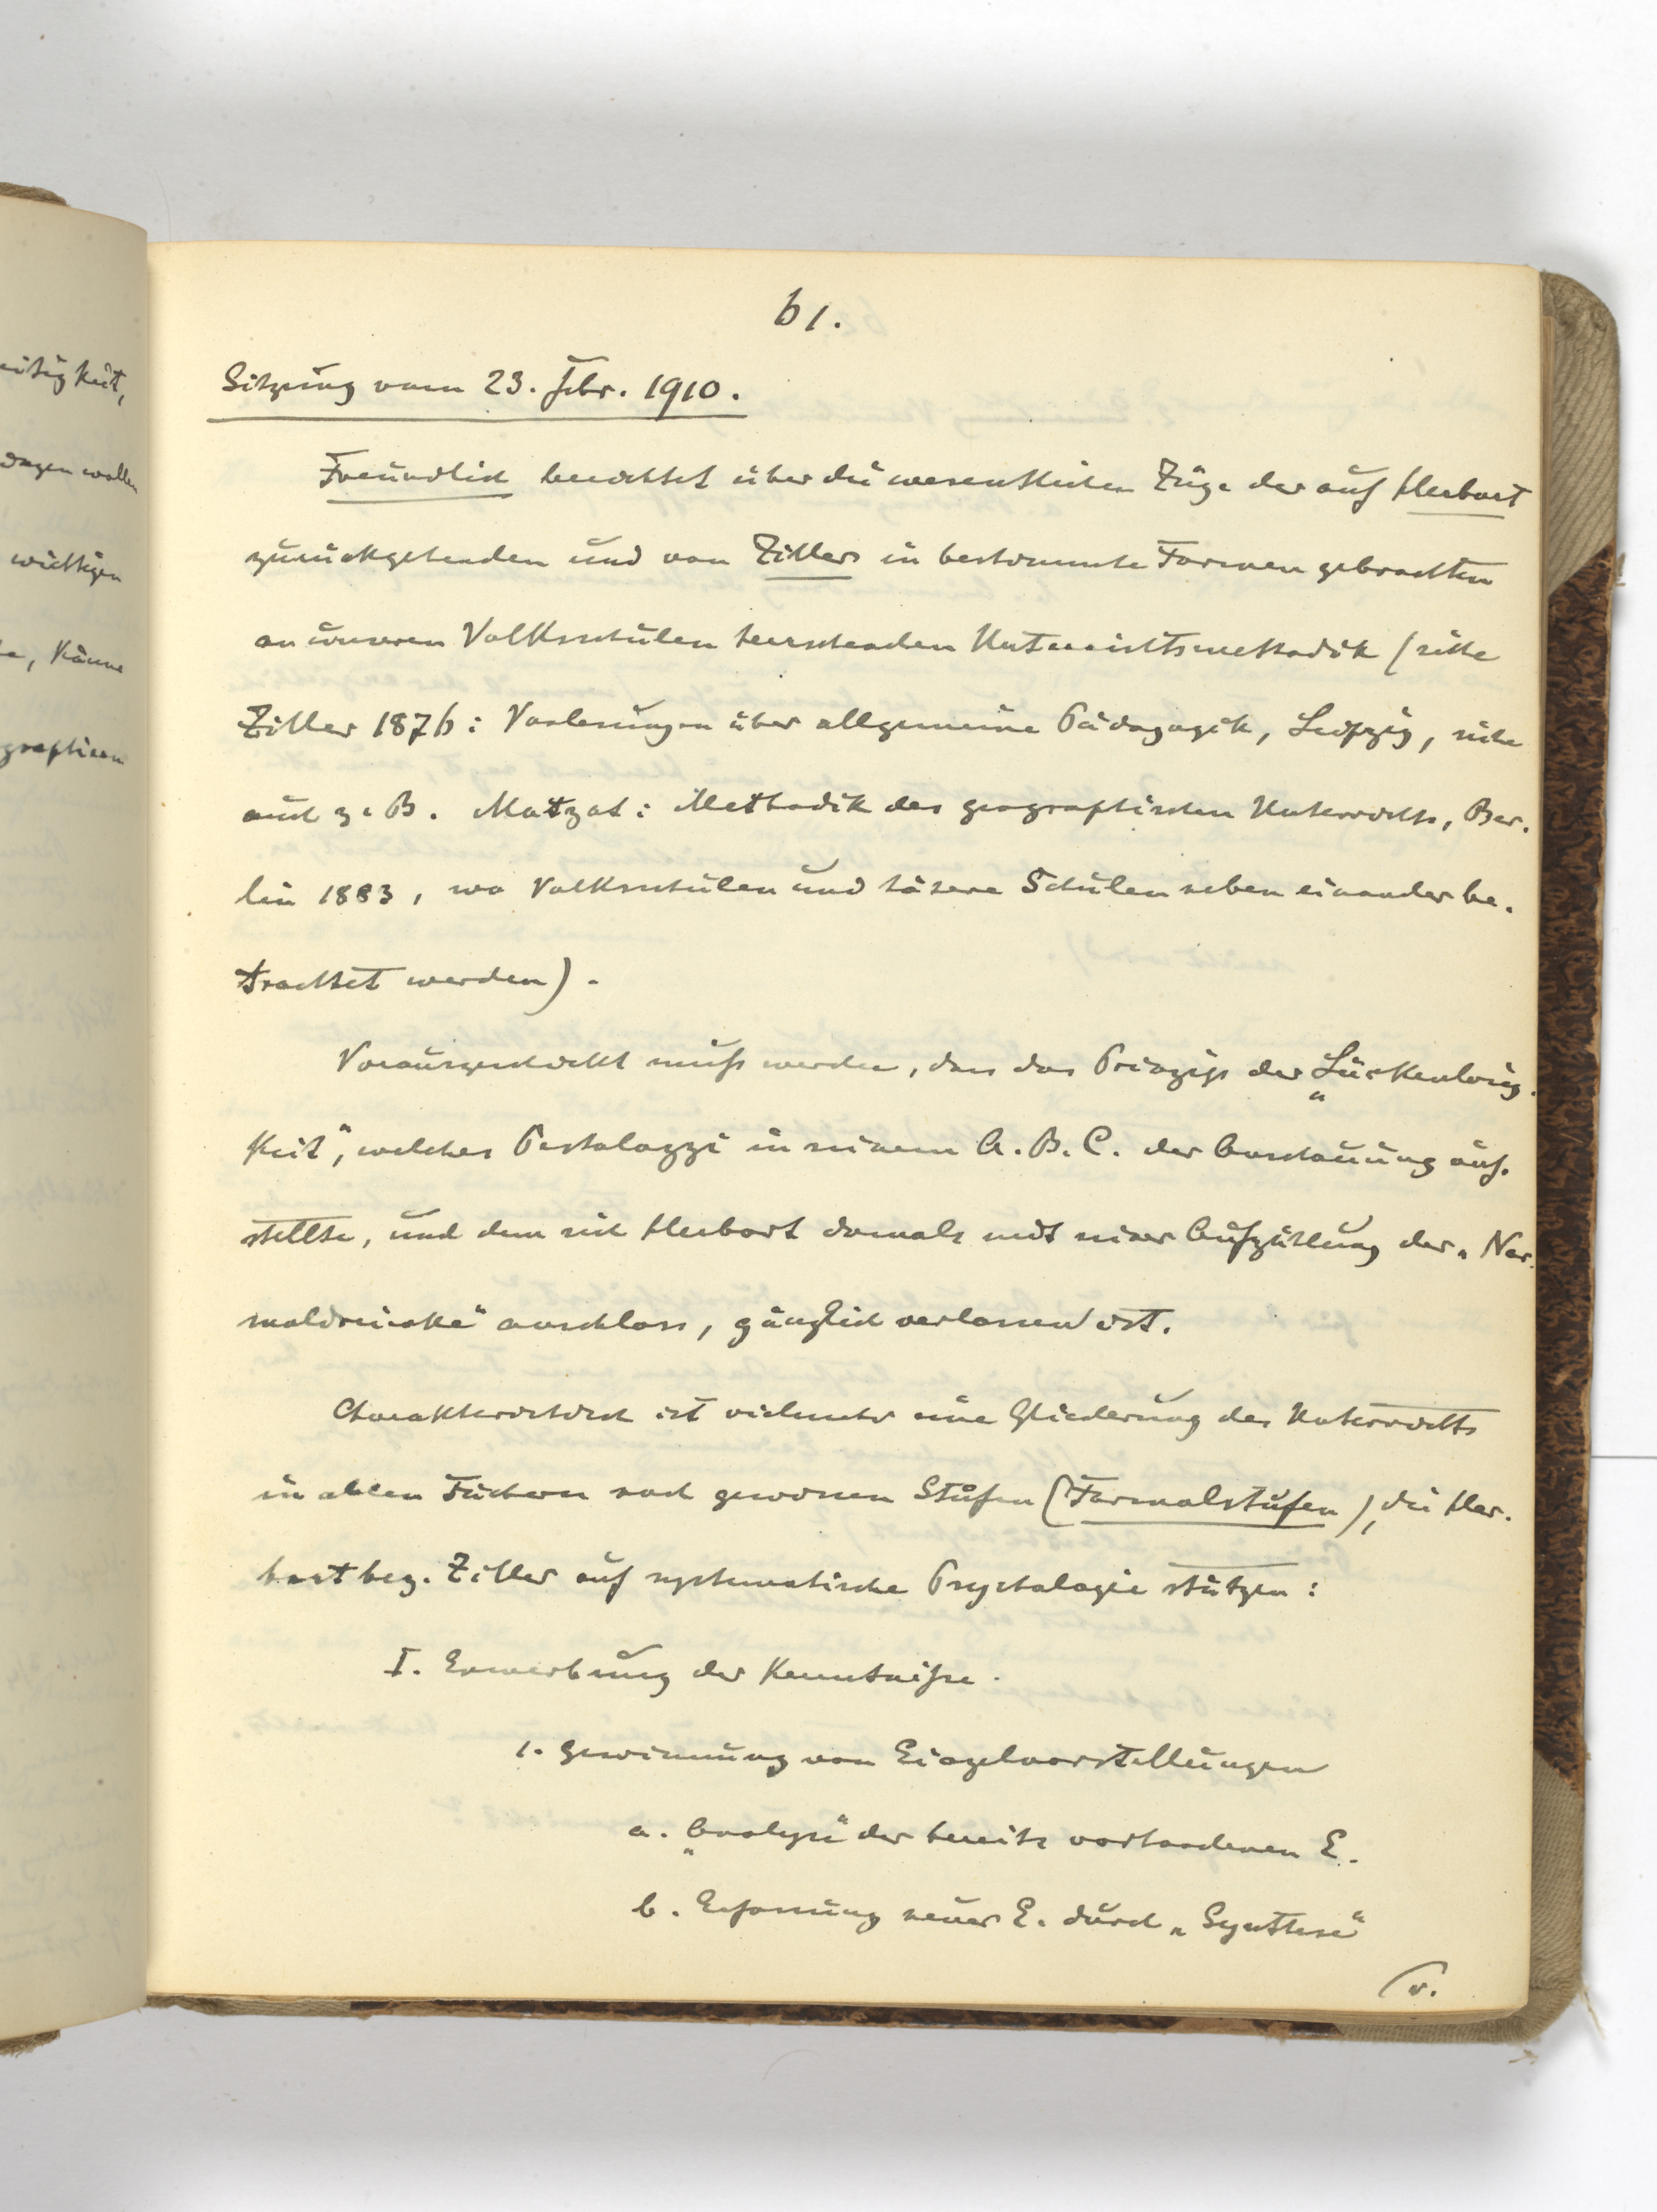 eitigkeit,
dagen wollen
wichtigen
Käume
graphieen
61.
Sitzung vom 23. Febr. 1910.
Freundlich berichtet über die wesentlichen Züge der auf Herbart
zurückgehenden und von Ziller in bestimmte Formen gebrachten
an unseren Volksschulen herrschenden Unterrichtsmethodik (siehe
Ziller 1876: Vorlesungen über allgemeine Pädagogik, Leipzig, siehe
auch z. B. Matzat: Methodik des geographischen Unterrichts, Ber-
lin 1883, wo Volksschulen und höhere Schulen neben einander be-
trachtet werden).
Vorausgeschickt muß werden, dass das Prinzip der „Lückenlosig-
keit“, welches Pestalozzi in seinem A. B. C. der Anschauung auf-
stellte, und dem sich Herbart damals mit seiner Aufzählung der „Nor-
maldreiecke“ anschloss, gänzlich verlassen ist.
Charakteristisch ist vielmehr eine Gliederung des Unterrichts
in allen Fächern nach gewissen Stufen (Formalstufen), die Her-
bart bez. Ziller auf systematische Psychologie stützen:
I. Erwerbung der Kenntniße.
1. Gewinnung von Einzelvorstellungen
a. „Analyse“ der bereits vorhandenen E.
b. Erfassung neuer E. durch „Synthese“